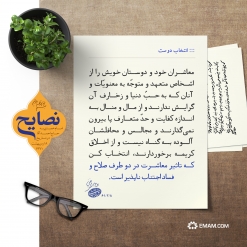 ::: انتخاب دوست
معاشران خود و دوستان خویش را از
اشخاص متعهد و متوجّه به معنویّات و
آنان که به حبّ دنیا و زخارف آن
گرایش ندارند و از مال و منال به
اندازه کفایت و حدّ متعارف پا بیرون
نمی‌گذارند و مجالس و محافلشان
آلوده به گناه نیست و از اخلاق
کریمه برخوردارند، انتخاب کن
که تأثیر معاشرت در دو طرف صلاح و
فساد اجتناب ناپذیر است.
نصایح
EMAM.COM